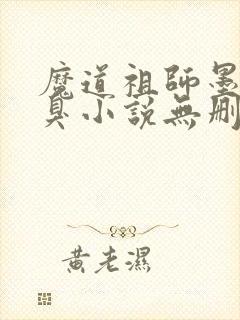 魔道祖師墨
臭小說無刪
黃老濕